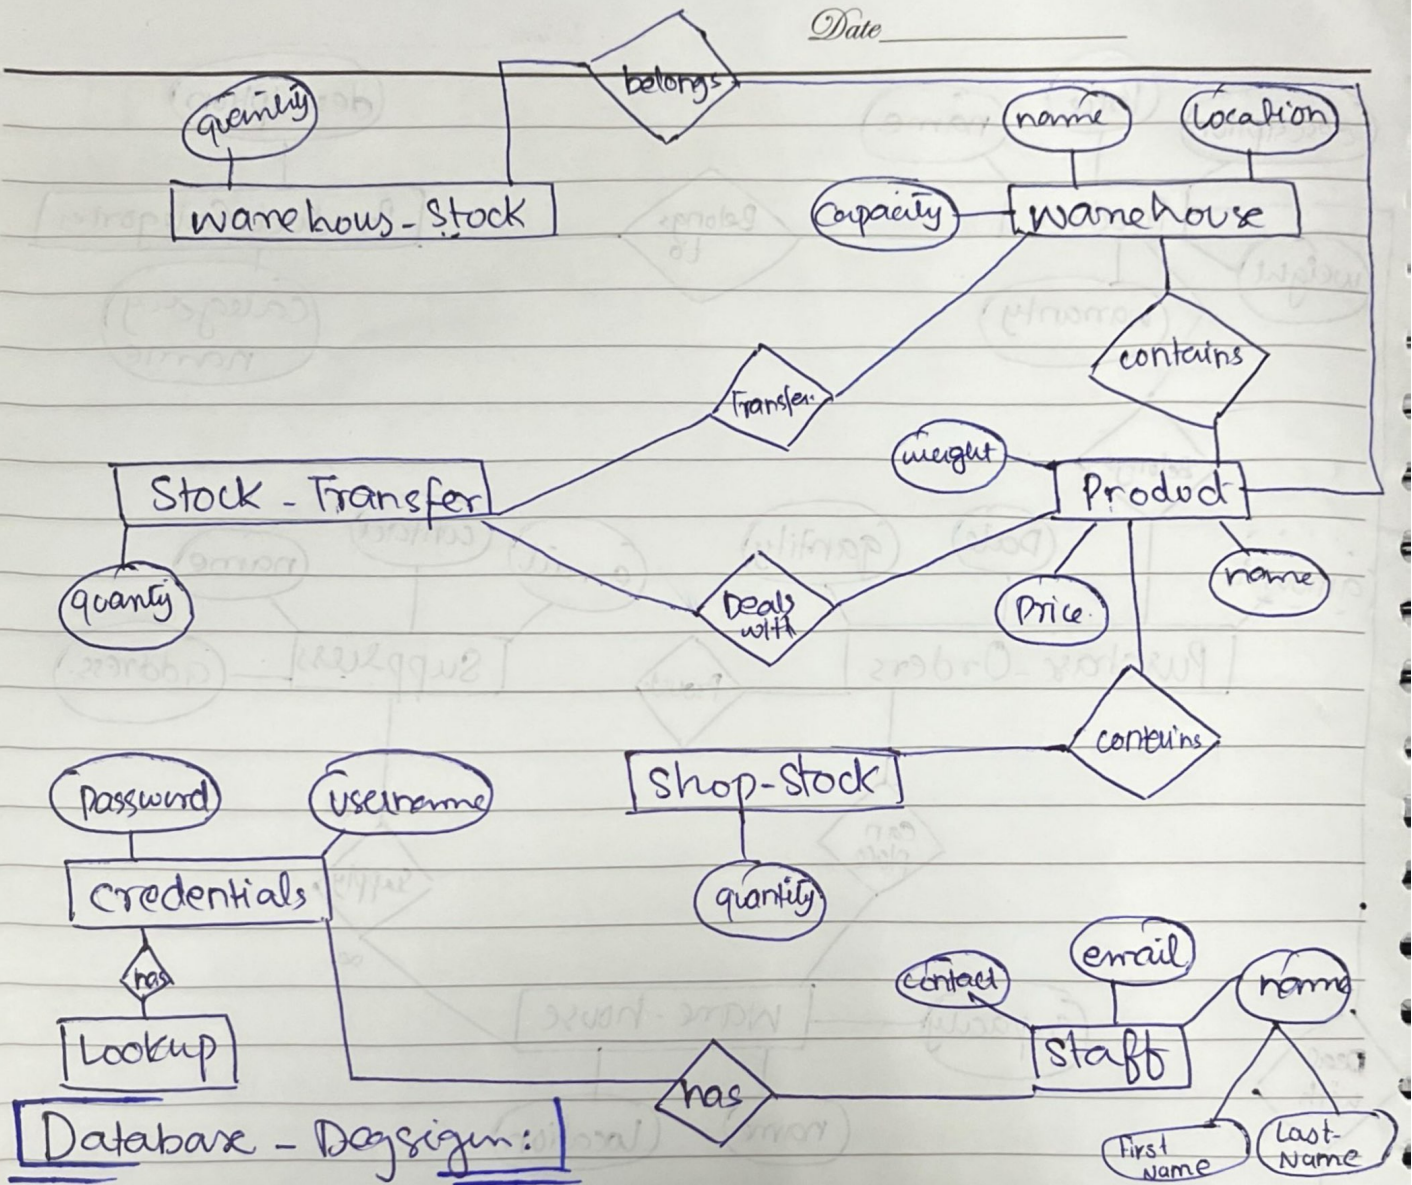 Date
belongs
quantity
name
Location
Warehous_Stock
Capacity
Warehouse
contains
Transfer
weight
Stock_Transfer
Product
quanty
Deals
with
Price
name
contains
Shop-Stock
password
username
credentials
quantity
has
contact
email
name
Lookup
Staff
has
First
Name
Last-
Name
Database - Degsigin: